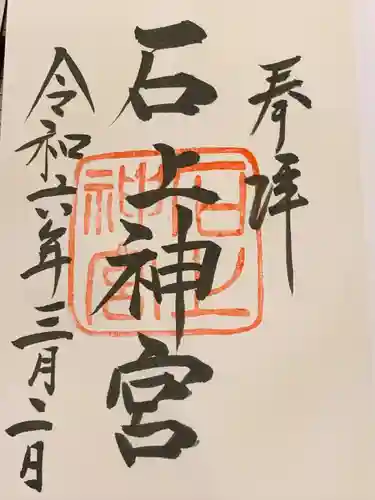 奉拝
石上神宮
石上神宮
令和六年三月二日